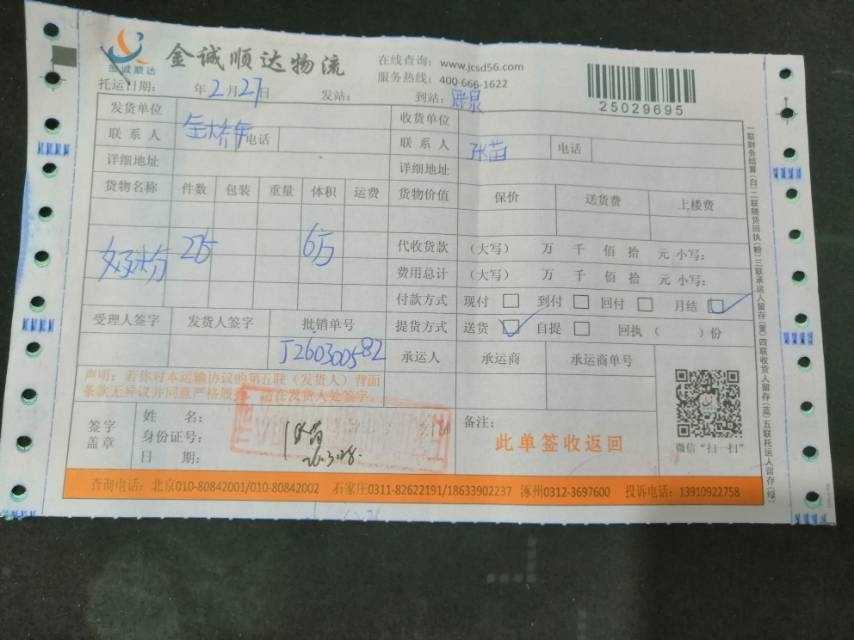 金诚顺达
金诚顺达物流
在线查询：www.jcsd56.com
服务热线：400-666-1622
25029695
托运日期： 年2月27日 发站： 到站：
发货单位 收货单位
联系人 电话 联系人 张苗 电话
详细地址 详细地址
货物名称 件数 包装 重量 体积 运费 货物价值 保价 送货费 上楼费
代收货款 （大写） 万 千 佰 拾 元 小写：
费用总计 （大写） 万 千 佰 拾 元 小写：
付款方式 现付 □ 到付 □ 回付 □ 月结 ☑
受理人签字 发货人签字 批销单号 提货方式 送货 ☑ 自提 □ 回执（ ）份
J260300582
承运人 承运商 承运商单号
声明：若你对本运输协议的第五联（发货人）背面
条款无异议并同意严格服 请在发货人处签字。
签字
盖章
姓名：
身份证号：
日期：
备注：
此单签收返回
微信“扫一扫”
查询电话：北京010-80842001/010-80842002 石家庄0311-82622191/18633902237 涿州0312-3697600 投诉电话：13910922758
一联财务结算(白)二联随货回执(粉)三联承运人留存(黄)四联收货人留存(蓝)五联托运人留存(绿)